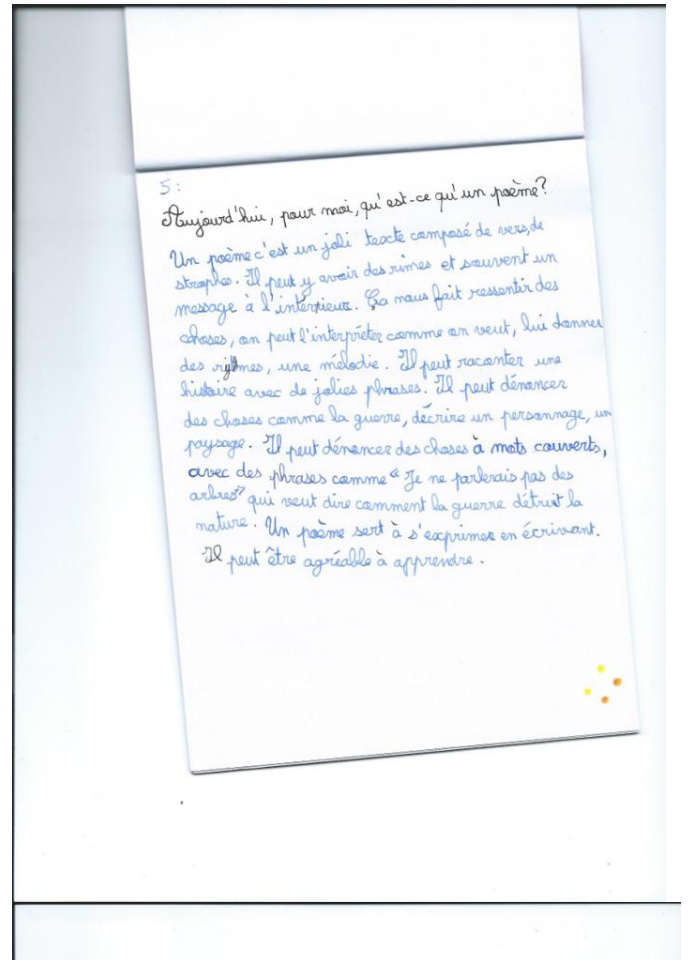 5:
Aujourd'hui, pour moi, qu'est-ce qu'un poème?
Un poème c'est un joli texte composé de vers, de
strophe. Il peut y avoir des rimes et souvent un
message à l'intérieur. Ça nous fait ressentir des
choses, on peut l'interpréter comme on veut, lui donner
des rytmes, une mélodie. Il peut raconter une
histoire avec de jolies phrases. Il peut dénoncer
des choses comme la guerre, décrire un personnage, un
paysage. Il peut dénoncer des choses à mots couverts,
avec des phrases comme "Je ne parlerais pas des
arbres" qui veut dire comment la guerre détruit la
nature. Un poème sert à s'exprimer en écrivant.
Il peut être agréable à apprendre.